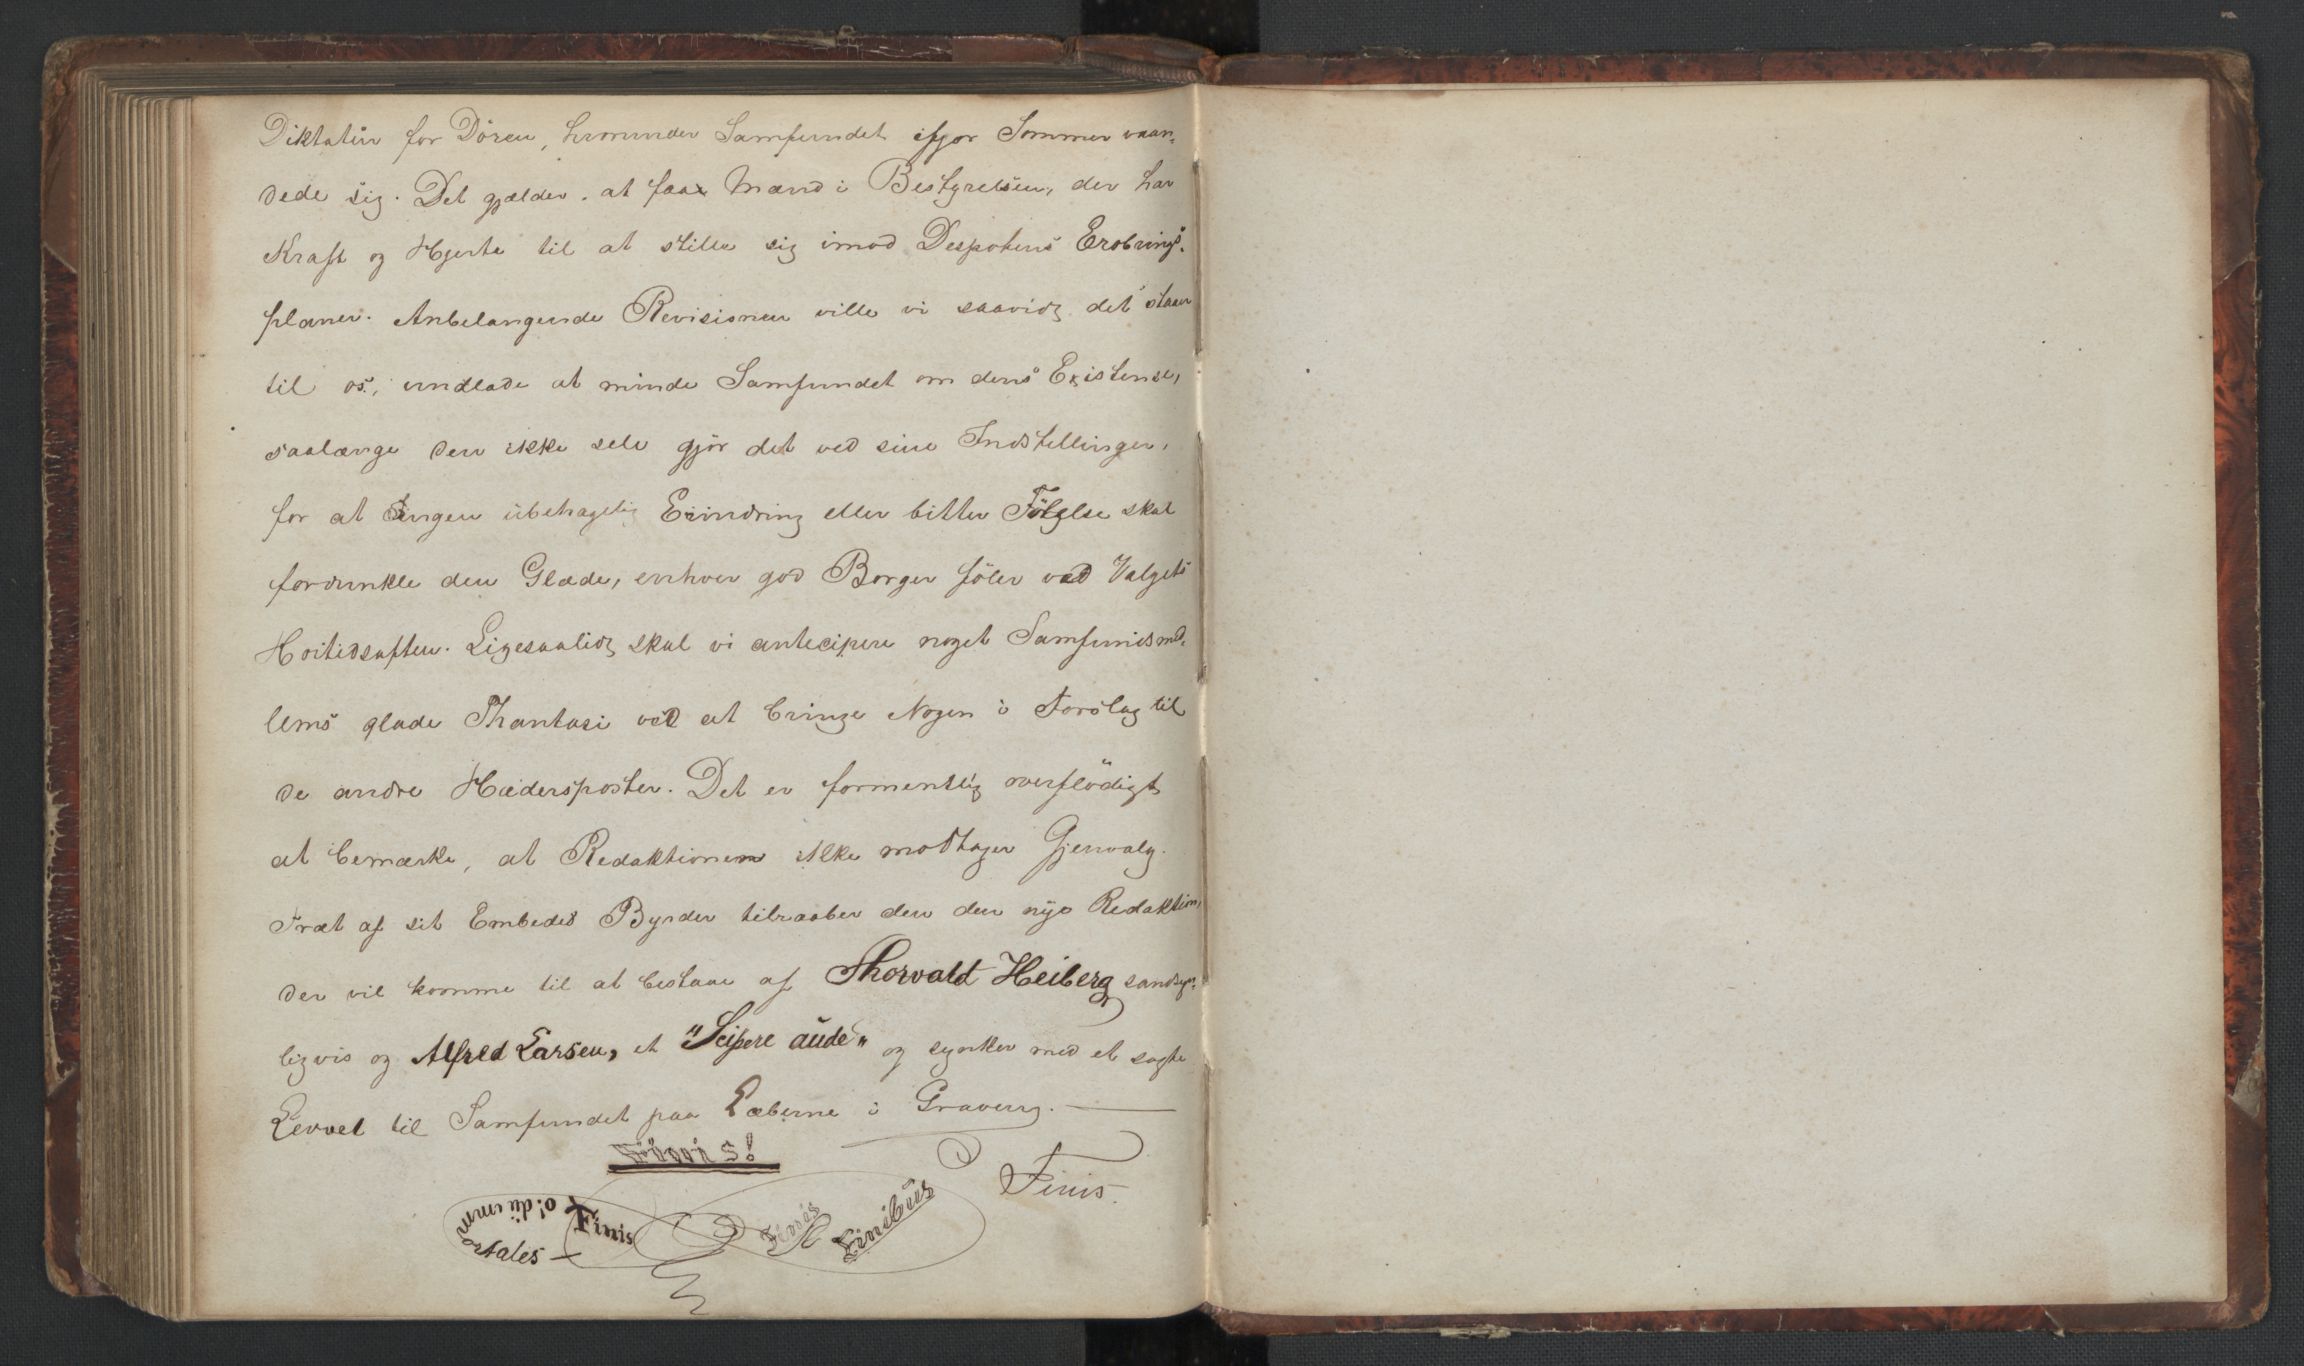 Diktatür for Dören, hvorunder Samfundet ifjor Sommer vaan-
dede sig. Det gjælder at faa Mænd i Bestyrelsen, der har
Kraft og Hjerte til at stille sig imod Despotens Erobrings-
planer. Anbelangende Revisionen ville vi saavidt det staar
til os, undlade at minde Samfundet om dens Existense,
saalænge den ikke selv gjör det ved sine Indstillinger,
for at Ingen übehagelig Erindring eller bitter Fölelse skal
fordunkle den Glæde, enhver god Borger föler ved Valgets
Hoitidsaften. Ligesaalidt skal vi antecipere noget Samfundsmed-
lems glade Phantasi ved at bringe Nogen i Forslag til
de andre Hædersposter. Det er formentlig overflödigt
at bemærke, at Redaktionen ikke modtager Gjenvalg.
Træt af sit Embedes Byrder tilraaber den den nye Redaktion,
der vil komme til at bestaae af Thorvald Heiberg sandsyn-
ligvis og Alfred Larsen, et "Sapere aude" og synker med et sagte
Levvel til Samfundet paa Læberne i Graven.
Finis!
Finis.
o! dii imm
ortales —
Finis
Finis
Finibüs